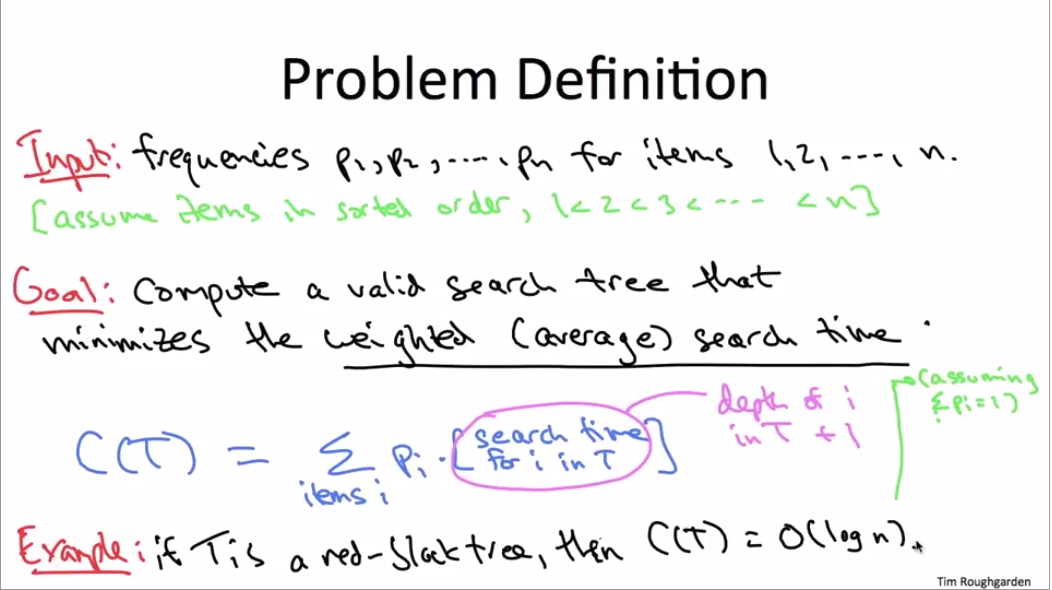 Problem Definition
Input: frequencies p1, p2, ...., pn for items 1, 2, ...., n.
[assume items in sorted order, 1 < 2 < 3 < ... < n]
Goal: Compute a valid search tree that
minimizes the weighted (average) search time.
(assuming
Σ pi = 1)
i
depth of i
in T + 1
C(T) = Σ pi · [search time
for i in T]
items i
Example: if T is a red-black tree, then C(T) = O(log n).
Tim Roughgarden